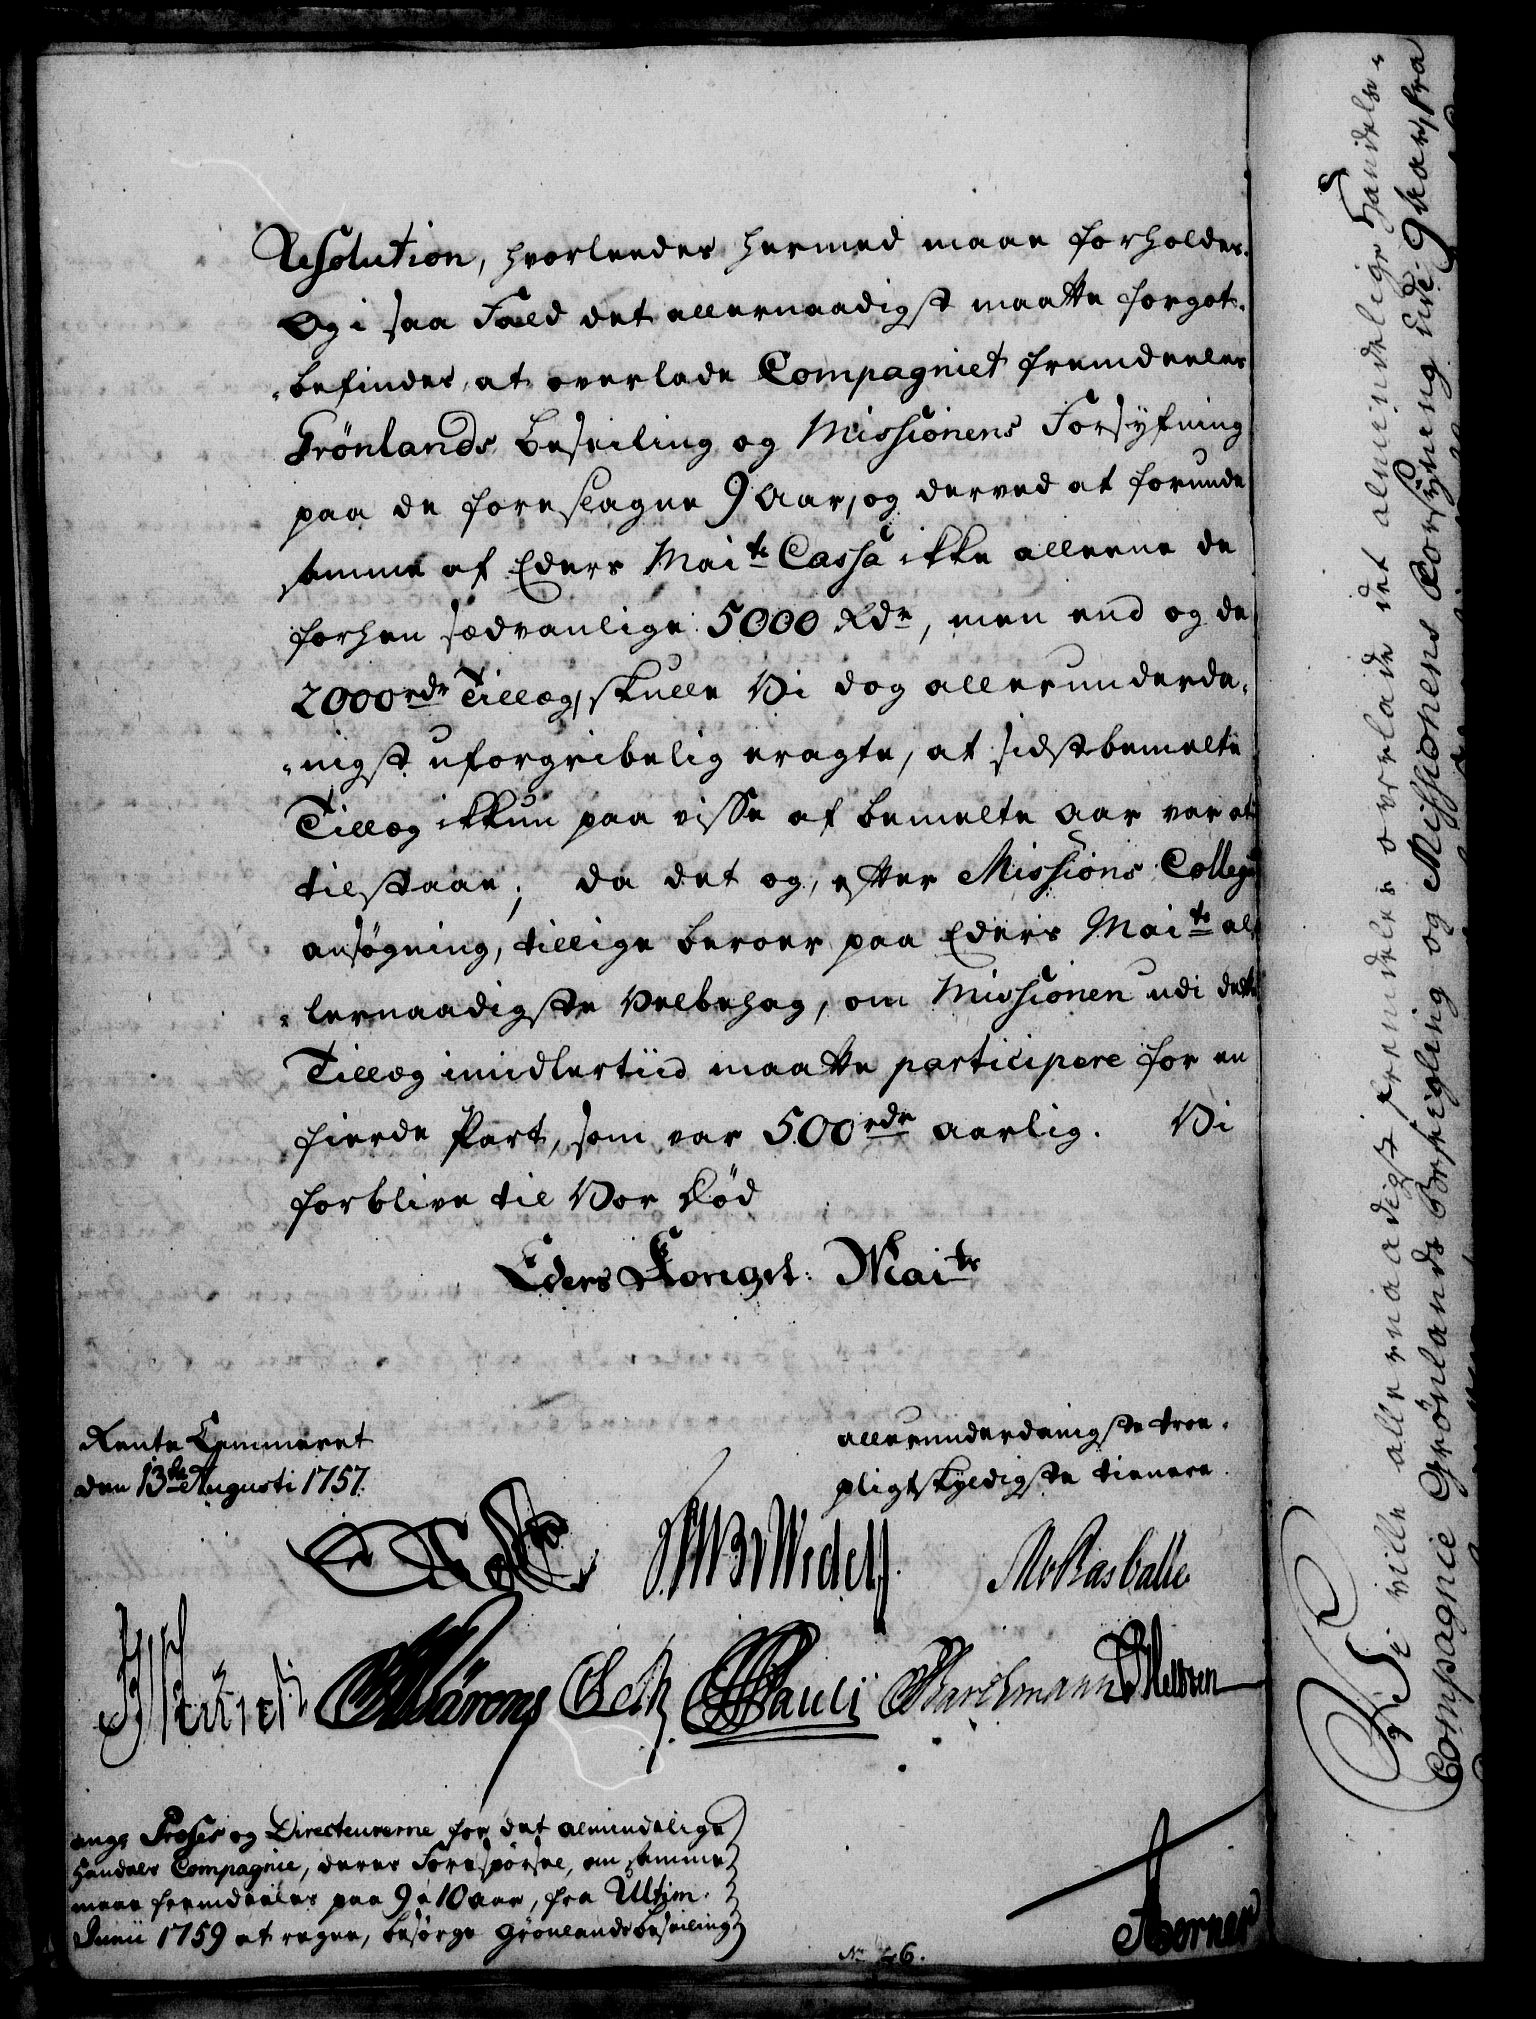 Resolution, hvorleedes hermed maae forholdes.
Og i saa Fald det allernaadigst maatte forgot-
-befindes, at overlade Compagniet fremdeeles
Grönlands Beseiling og Missionens Forsyfning
paa de foreslagne 9 Aar, og derved at forunde
samme af Eders Mai.te Cassa ikke alleene de
forhen sædvanlige 5000 Rdr, men end og de
2000 rdr Tillæg, skulle Vi dog allerunderda-
-nigst uforgribelig eragte, at sidstbemelte
Tillæg ikkun paa visse af bemelte Aar var at
tilstaae; da det og, efter Missions Collegii
ansøgning, tillige beroer paa Eders Mai.te al-
-lernaadigste Velbehag, om Missionen udi dette
Tillæg imidlertiid maatte participere for en
fierde Part, som var 500 rdr aarlig. Vi
forblive til Vor Død
Eders Kongel: Mai.te
Rente Cammeret
den 13de Augusti 1757.
allerunderdanigste troe-
pligtskyldigste tienere
Wedell
Rasballe
Pauli
Barchmann
ang: Præses og Directeurerne for det almindelige
Handels Compagnie, deres Forespørsel, om samme
maae fremdeeles paa 9 a 10 aar, fra Ultim.
Junii 1759 at regne, besørge Grönlands beseiling
No 46.
Vi ville allernaadigst fremdeles overlade det almindelige Handels-
Compagnie Grønlands Beseigling og Missionens Forsyning udi 9 Aar, fra